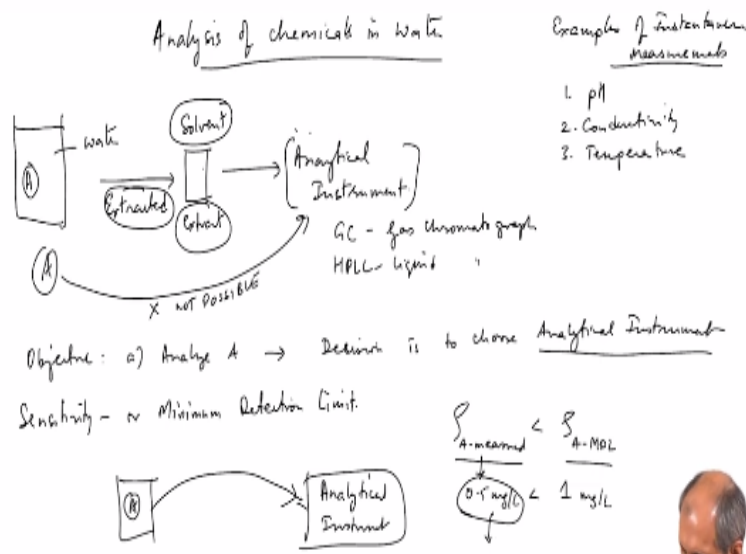 Analysis of chemicals in water
Examples of Instantaneous
Measurements
1. pH
2. Conductivity
3. Temperature
water
A
Solvent
Extracted
Extract
Analytical
Instrument
A
X NOT POSSIBLE
GC - Gas chromatograph
HPLC - Liquid "
Objective: a) Analyze A → Decision is to choose Analytical Instrument
Sensitivity - or Minimum Detection Limit.
ρA-measured < ρA-MDL
0.5 mg/L < 1 mg/L
A
Analytical
Instrument